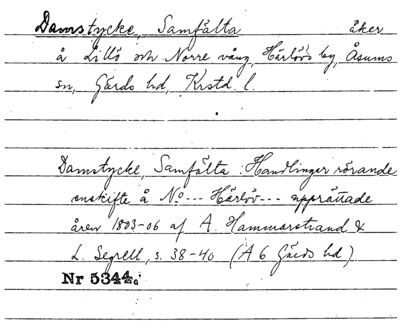 Damstycke, Samfälta åker
å Lillö och Norre vång, Härlövs by, Åsums
sn, Gärds hd, Krstd l.
Damstycke, Samfälta : Handlingar rörande
enskifte å No --- Härlöv --- upprättade
åren 1803-06 af A. Hammarstrand &
L. Segrell, s. 38-40 (A 6 Gärds hd).
Nr 5344a